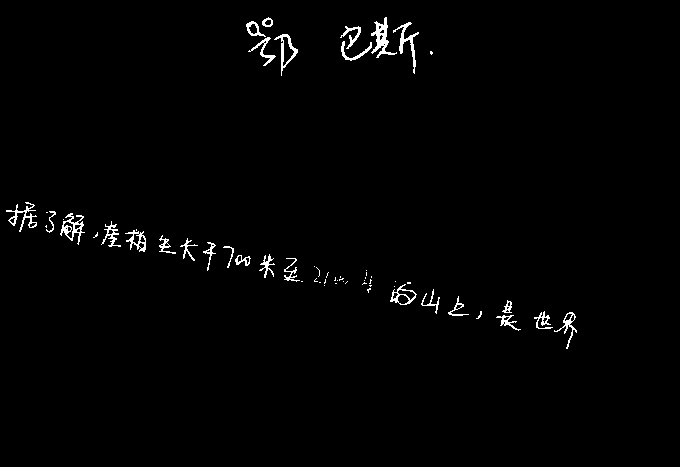 鄂 巴斯.
据了解,崖柏生长于700米至2100米的山上,是世界